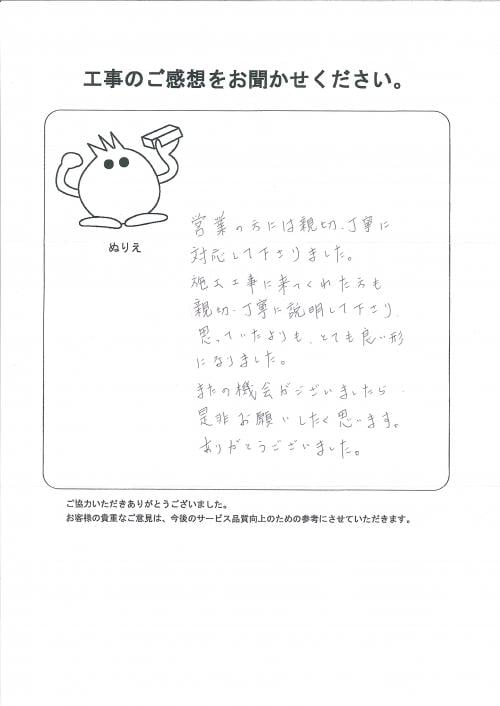 工事のご感想をお聞かせください。
ぬりえ
営業の方には親切、丁寧に
対応して下さりました。
施工工事に来てくれた方も
親切、丁寧に説明して下さり、
思っていたよりも、とても良い形
になりました。
またの機会がございましたら
是非お願いしたく思います。
ありがとうございました。
ご協力いただきありがとうございました。
お客様の貴重なご意見は、今後のサービス品質向上のための参考にさせていただきます。